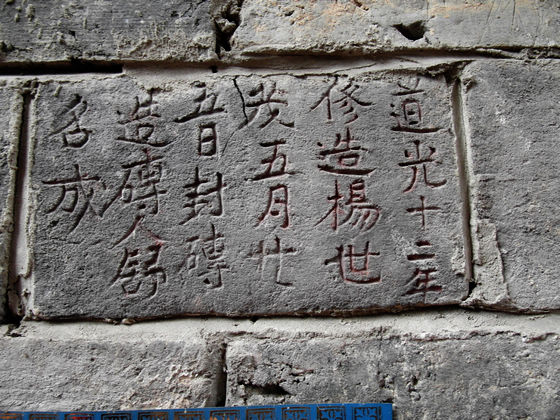 道光十二年
修造楊世
茂五月廿
五日封磚
造磚人舒
名成